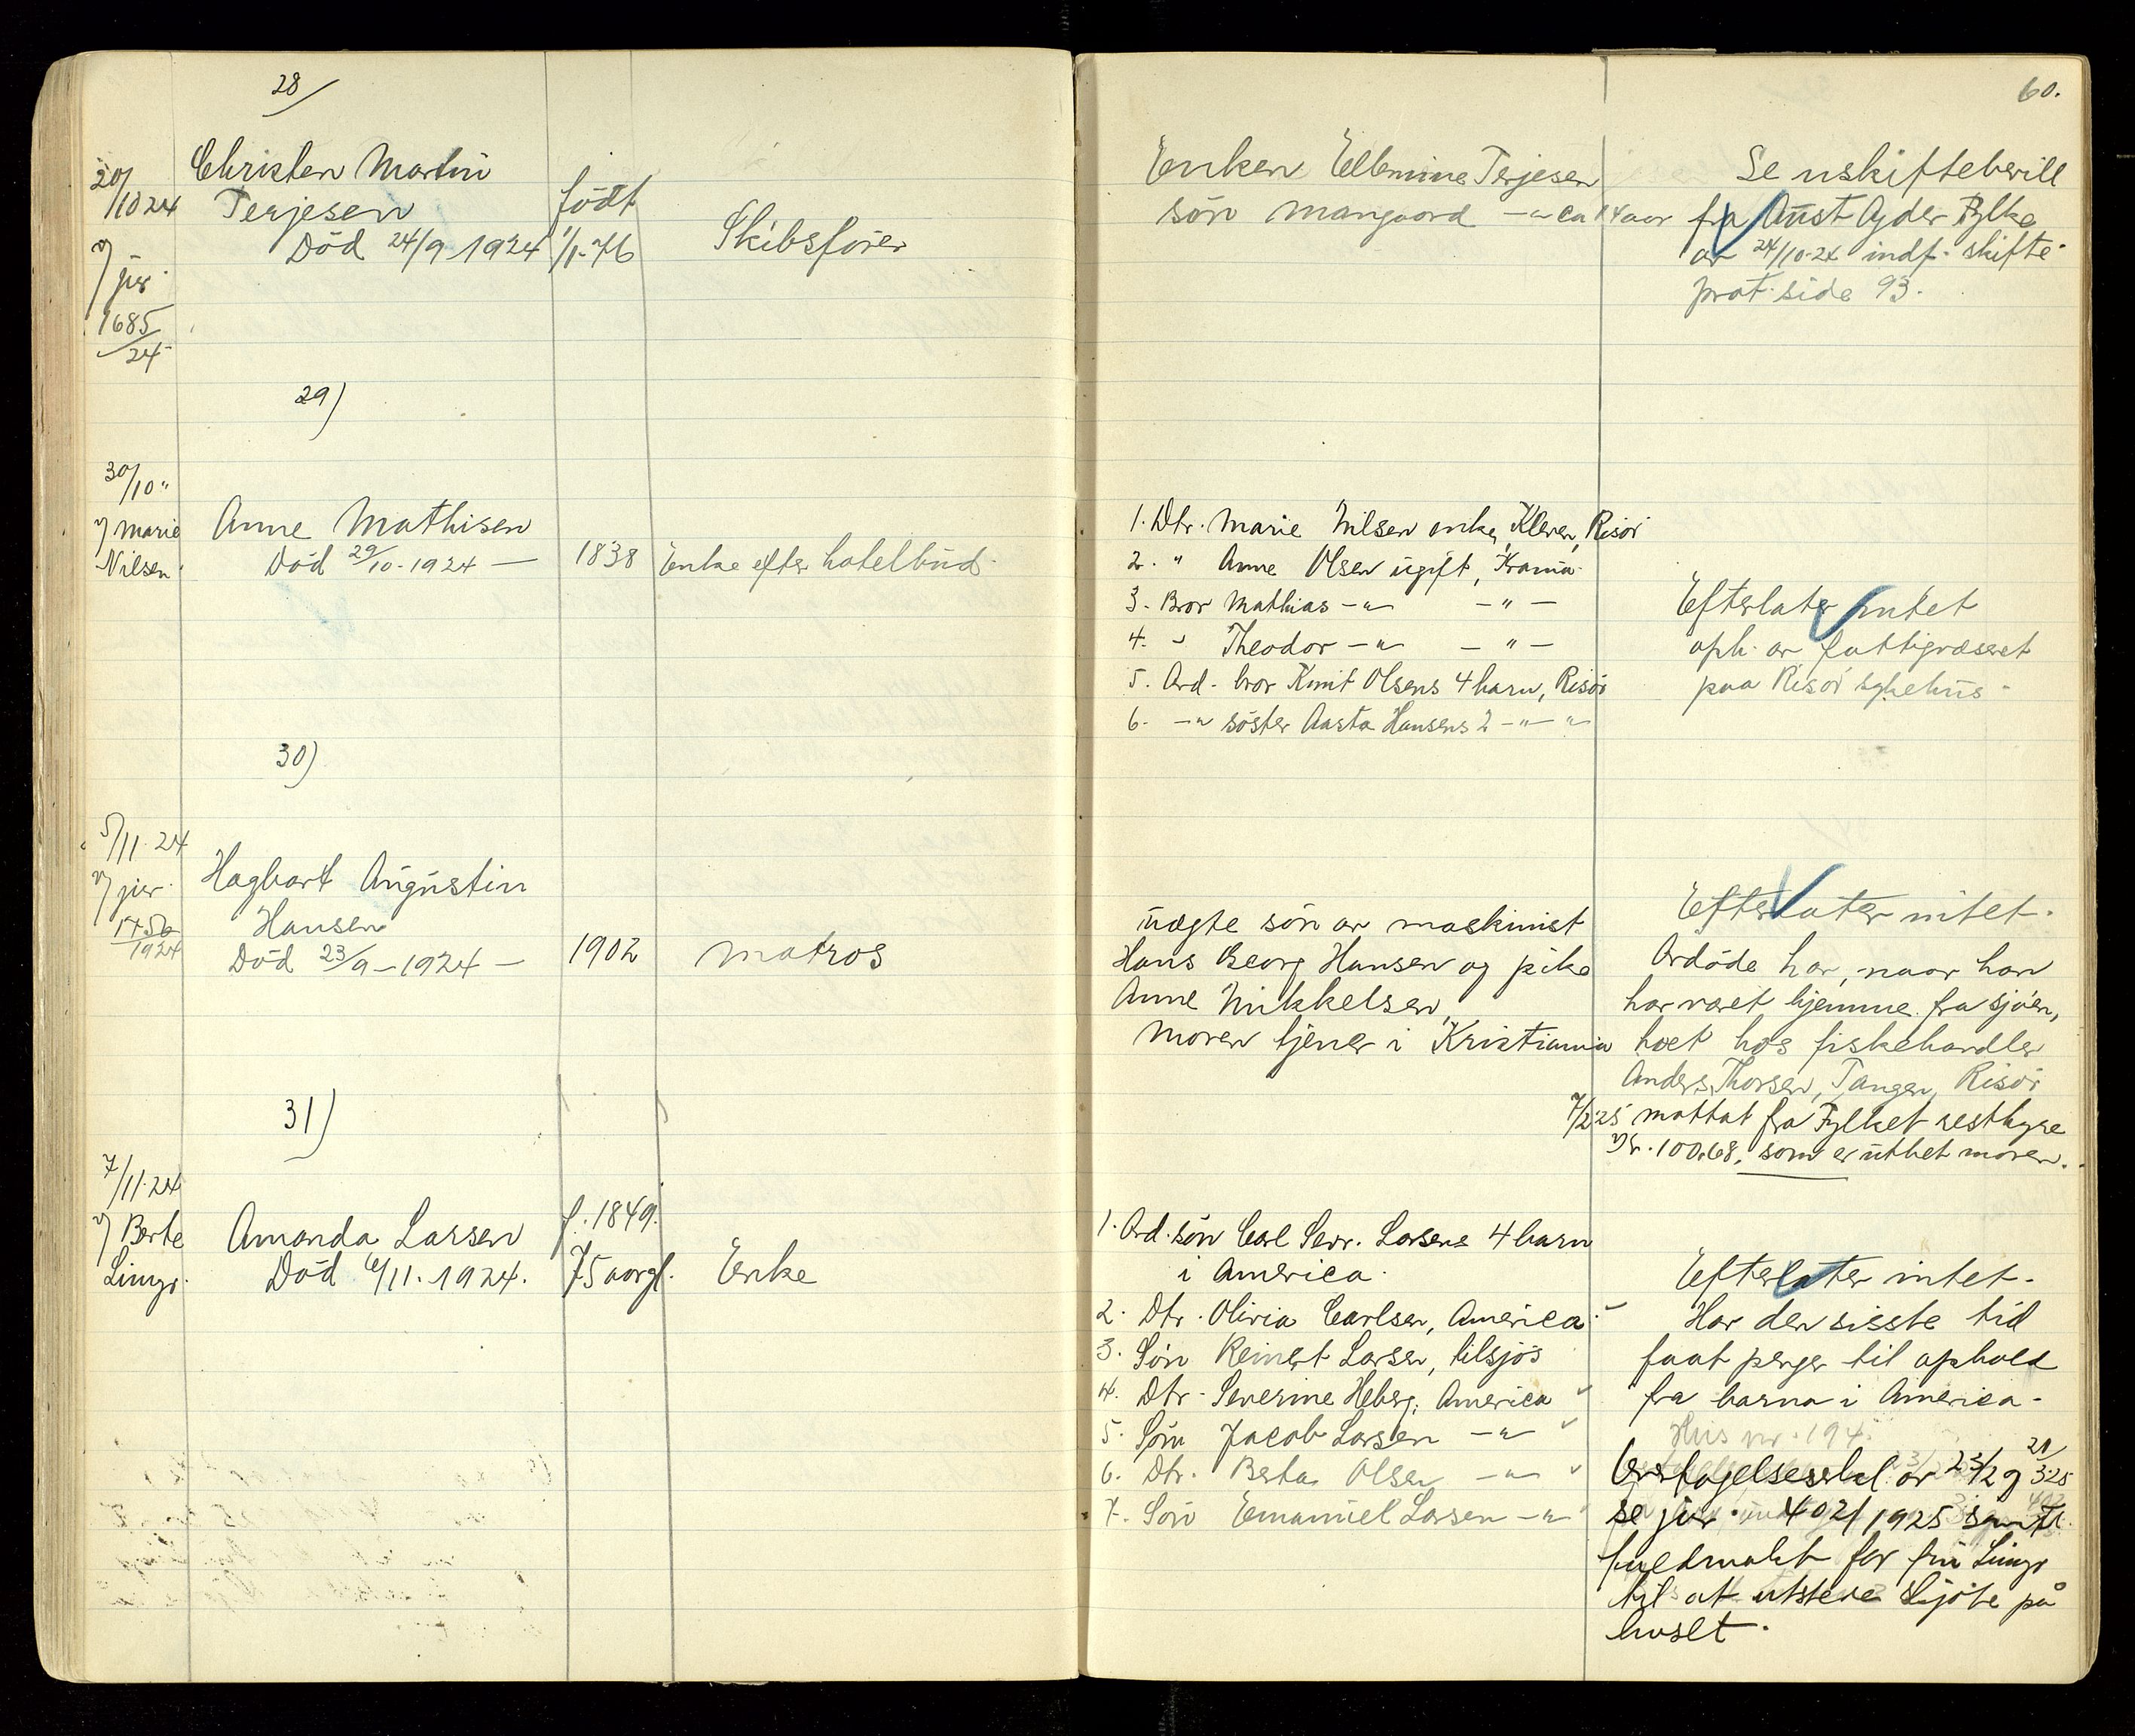 60.
28/
20/10 24
v/ jur.
1685/24
Christen Martin
Terjesen
Død 24/9-1924
født
1/1-76
Skibsfører
Enken Ellemine Terjesen
søn Mangvard -"- ca 14 aar
Se uskiftebevill
fra Aust Agder Fylke
av 24/10-24 indf. skifte
prot. side 93.
29)
30/10 "
v/ Marie
Nilsen
Anne Mathisen
Død 29/10-1924 —
1838
Enke efter hotelbud
1. Dtr. Marie Nilsen enke, Kleven, Risør
2. " Anne Olsen ugift, Krania
3. Bror Mathias -"- -"-
4. " Theodor -"- -"-
5. Avd. bror Knut Olsens 4 barn, Risør
6. -"- søster Aasta Hansens 2 -"- "
Efterlater intet
oph. av fattigvæsenet
paa Risør sykehus
30)
5/11-24
v/ jur.
1756/1924
Hagbart Augustin
Hansen
Død 23/9-1924 —
1902
Matros
uægte søn av maskinist
Hans Georg Hansen og pike
Anne Mikkelsen,
Moren tjener i Kristiania
Efterlater intet.
Avdøde har, naar han
har været hjemme fra sjøen,
boet hos fiskehandler
Anders Thorsen, Tangen, Risør
7/2 25 mottat fra Fylket resthyre
kr. 100,68, som er utbet moren.
31)
7/11-24
v/ Berte
Limyr.
Amanda Larsen
Død 6/11-1924.
f. 1849.
75 aar gl.
Enke
1. Avd. søn Carl Sevr. Larsens 4 barn
i America
2. Dtr. Olivia Carlsen, America
3. Søn Reinert Larsen, tilsjøs
4. Dtr. Severine Heberg, America
5. Søn Jacob Larsen -"-
6. Dtr. Berta Olsen -"-
7. Søn Emanuel Larsen -"-
Efterlater intet.
Har den sisste tid
faat penger til ophold
fra barna i America.
Hus nr. 194.
Overtagelseserkl. av 23/2 og 21/3 25
se jur. 402/1925 samt
fuldmakt for fru Limyr
til at utstede skjøte på
huset.